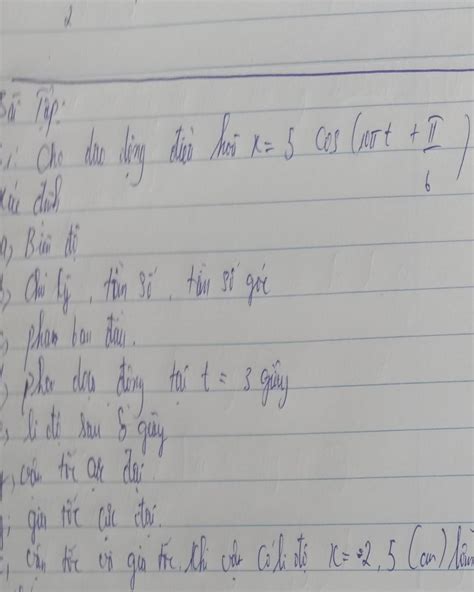 2
Bài Tập:
1: Cho dao động điều hoà x = 5 cos (10πt + π/6)
Xác định
a, Biên độ
b, Chu kỳ, tần số, tần số góc
c, pha ban đầu.
d, pha dao động tại t = 3 giây
e, li độ sau 5 giây
f, vận tốc cực đại
g, gia tốc cực đại.
vận tốc và gia tốc khi vật có li độ x = 2,5 (cm)